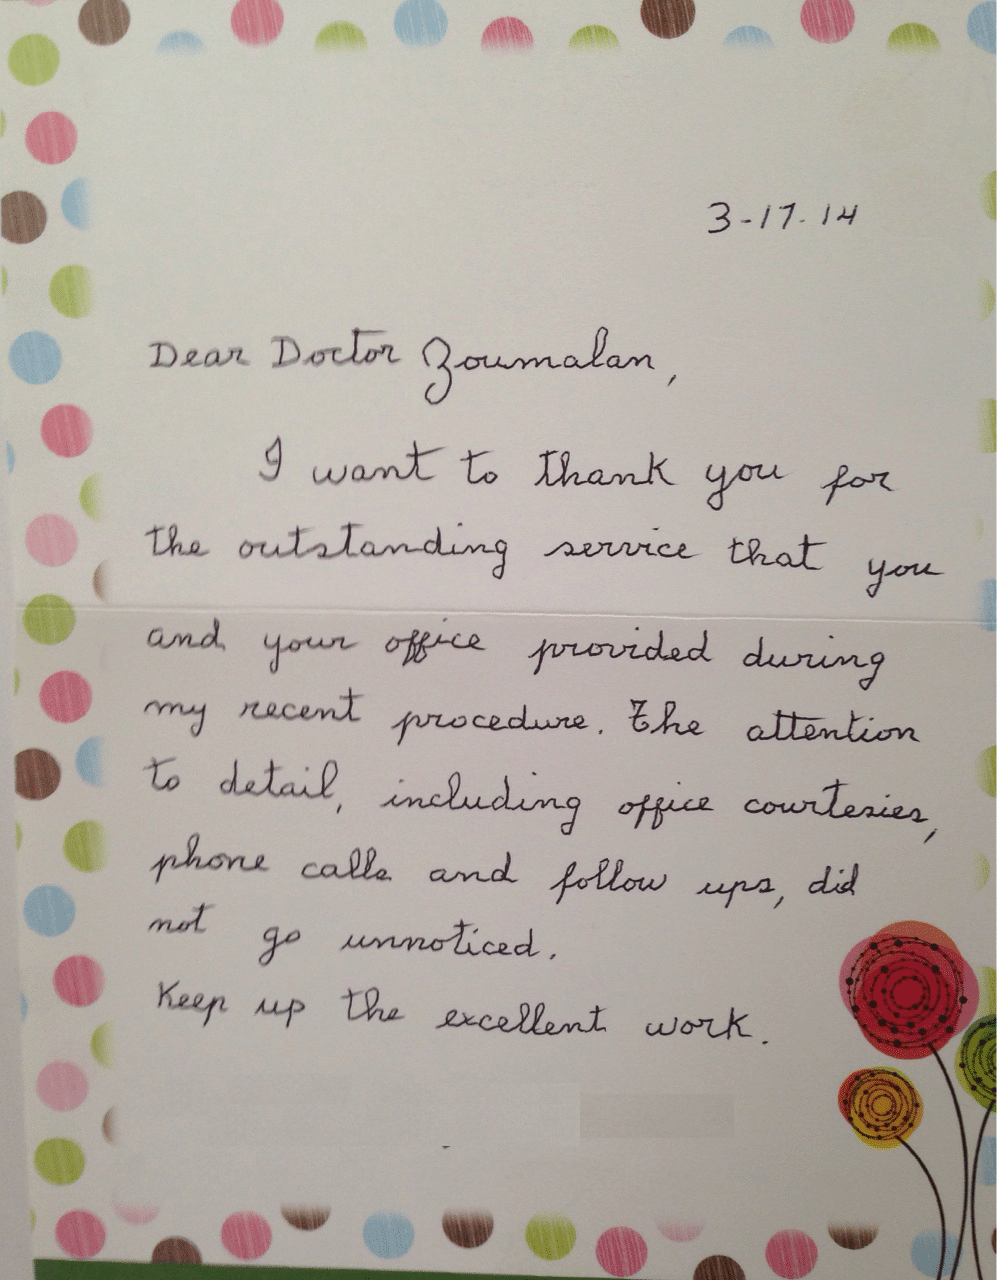 3-17-14
Dear Doctor Zoumalan,
I want to thank you for
the outstanding service that you
and your office provided during
my recent procedure. The attention
to detail, including office courtesies,
phone calls and follow ups, did
not go unnoticed.
Keep up the excellent work.